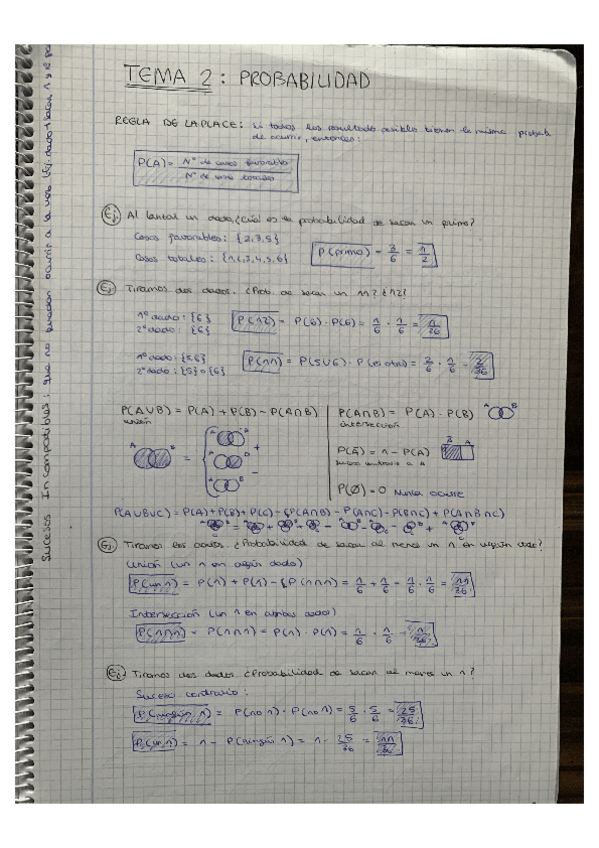 TEMA 2: PROBABILIDAD
REGLA DE LAPLACE: si todos los resultado posibles tienen la misma probab.
de ocurrir, entonces:
P(A) = Nº de casos favorables / Nº de casos totales
Ej. Al lanzar un dado, ¿cuál es la probabilidad de sacar un primo?
Casos favorables: {2,3,5}
Casos totales: {1,2,3,4,5,6}
P(primo) = 3/6 = 1/2
Ej. Tiramos dos dados. ¿Prob. de sacar un 11? ¿12?
1º dado: {6}
2º dado: {6}
P(12) = P(6) · P(6) = 1/6 · 1/6 = 1/36
1º dado: {5,6}
2º dado: {5} o {6}
P(11) = P(5∪6) · P(el otro) = 2/6 · 1/6 = 2/36
P(A∪B) = P(A) + P(B) - P(A∩B)
unión
A B = A B + A B - A B
P(A∩B) = P(A) · P(B) A B
intersección
P(Ā) = 1 - P(A) Ā A
suceso contrario a A
P(Ø) = 0 Nunca ocurre
P(A∪B∪C) = P(A)+P(B)+P(C) - P(A∩B) - P(A∩C) - P(B∩C) + P(A∩B∩C)
Ej. Tiramos dos dados. ¿Probabilidad de sacar al menos un 1 en algún dado?
Unión (un 1 en algún dado)
P(un 1) = P(1) + P(1) - P(1∩1) = 1/6 + 1/6 - 1/6 · 1/6 = 11/36
Intersección (un 1 en ambos dados)
P(1∩1) = P(1∩1) = P(1) · P(1) = 1/6 · 1/6 = 1/36
Ej. Tiramos dos dados. ¿Probabilidad de sacar al menos un 1?
Suceso contrario:
P(ningún 1) = P(no 1) · P(no 1) = 5/6 · 5/6 = 25/36
P(un 1) = 1 - P(ningún 1) = 1 - 25/36 = 11/36
Sucesos Incompatibles: que no puedan ocurrir a la vez